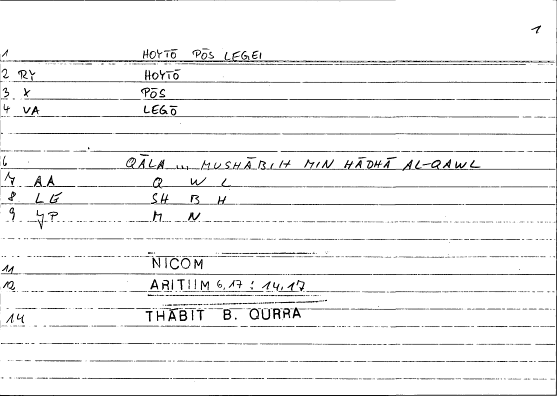 1
1 HOYTŌ PŌS LEGEI
2 RY HOYTŌ
3 X PŌS
4 VA LEGŌ
6 QĀLA ... MUSHĀBIH MIN HĀDHĀ AL-QAWL
7 AA Q W L
8 LG SH B H
9 YP M N
11 NICOM
12 ARITIIM 6,17 : 14,17
14 THĀBIT B. QURRA